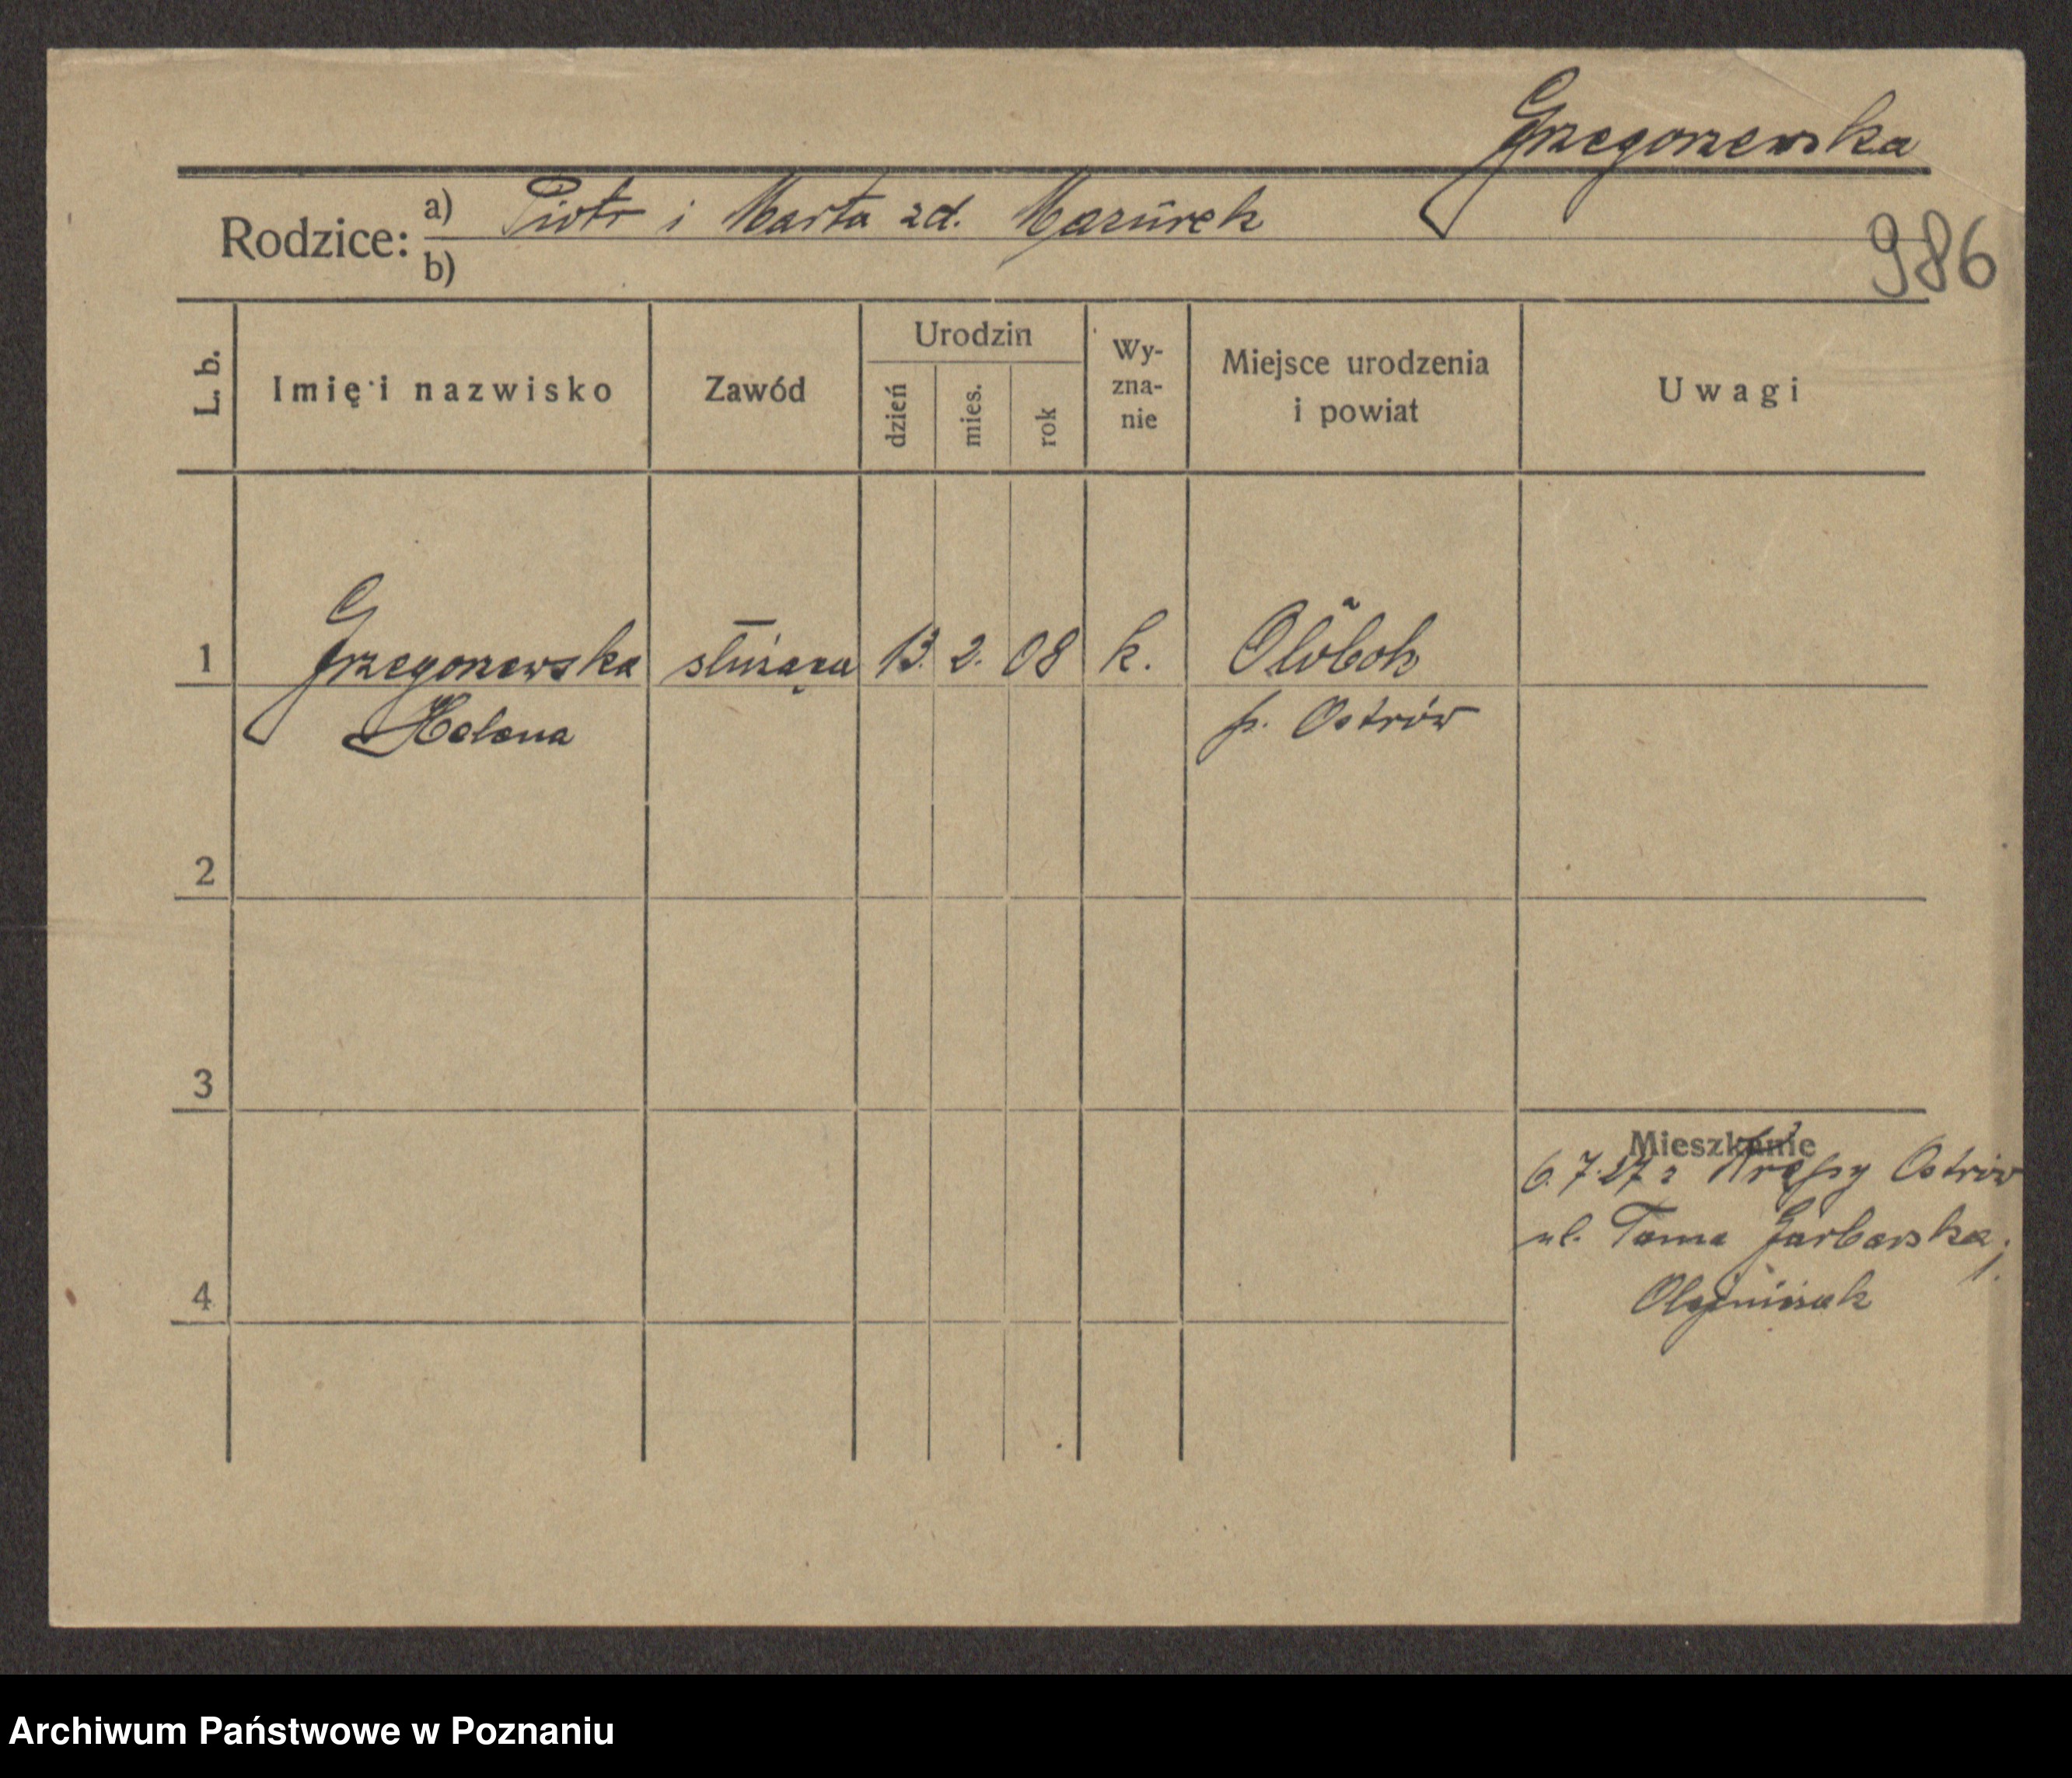 Grzegorzewska
Rodzice: a) Piotr i Marta zd. Mazurek
b)
986
L. b.
Imię i nazwisko
Zawód
Urodzin
dzień
mies.
rok
Wy-
zna-
nie
Miejsce urodzenia
i powiat
Uwagi
1 Grzegorzewska służąca 13. 2. 08 k. Olobok
Helena p. Ostrów
2
3
Mieszkanie
6.7.27 z Krępy Ostrów
ul. Tama Garbarska 1.
4 Olejniczak
Archiwum Państwowe w Poznaniu